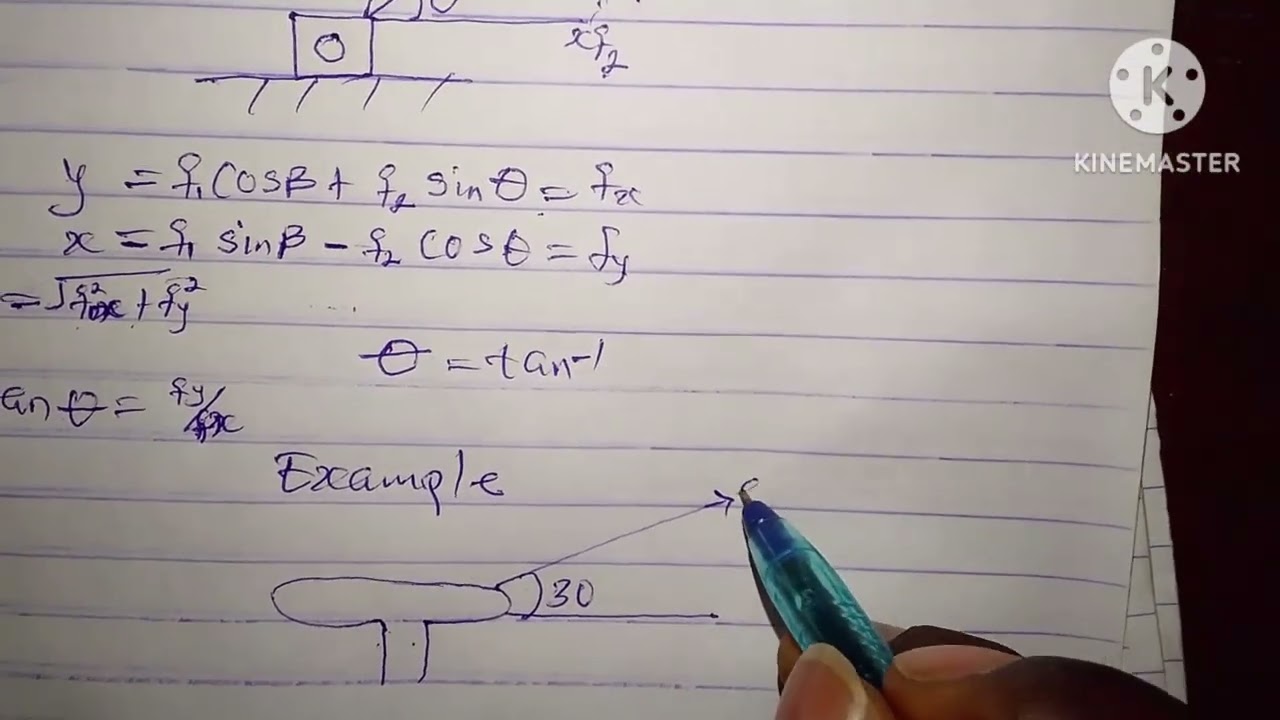 θ
xf₂
K
KINEMASTER
y = f₁ Cosβ + f₂ sinθ = fx
x = f₁ sinβ - f₂ cosθ = fy
= √fx² + fy²
θ = tan⁻¹
an θ = fy/fx
Example
30